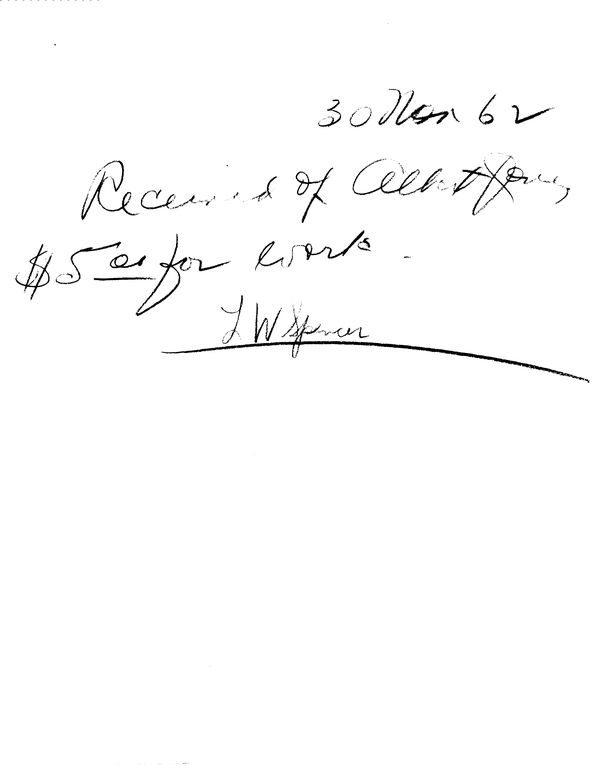 30 Nov 62
Received of Albert Jones
$5 00 for work.
L W Spencer